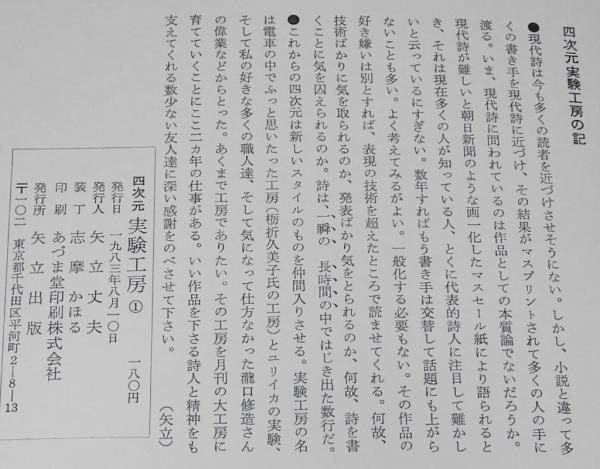 四次元実験工房の記
●現代詩は今も多くの読者を近づけさせそうにない。しかし、小説と違って多
くの書き手を現代詩に近づけ、その結果がマスプリントされて多くの人の手に
渡る。いま、現代詩に問われているのは作品としての本質論でないだろうか。
現代詩が難しいと朝日新聞のような画一化したマスセール紙により語られると
き、それは現在多くの人が知っている人、とくに代表的詩人に注目して難かし
いと云っているにすぎない。数年すればもう書き手は交替して話題にも上がら
ないことも多い。よく考えてみるがよい。一般化する必要もない。その作品の
好き嫌いは別とすれば、表現の技術を超えたところで読ませてくれる。何故、
技術ばかりに気を取られるのか、発表ばかり気をとられるのか、何故、詩を書
くことに気を囚えられるのか。詩は、一瞬の、長時間の中ではじき出た数行だ。
●これからの四次元は新しいスタイルのものを仲間入りさせる。実験工房の名
は電車の中でふっと思いたった工房〈栃折久美子氏の工房〉とユリイカの実験、
そして私の好きな多くの職人達、そして気になって仕方なかった瀧口修造さん
の偉業などからとった。あくまで工房でありたい。その工房を月刊の大工房に
育てていくことにここ二カ年の仕事がある。いい作品を下さる詩人と精神をも
支えてくれる数少ない友人達に深い感謝をのべさせて下さい。
（矢立）
四次元 実験工房① 一八〇円
発行日 一九八三年八月一〇日
発行人 矢立丈夫
装丁 志摩かほる
印刷 あづま堂印刷株式会社
発行所 矢立出版
〒一〇二 東京都千代田区平河町2-8-13